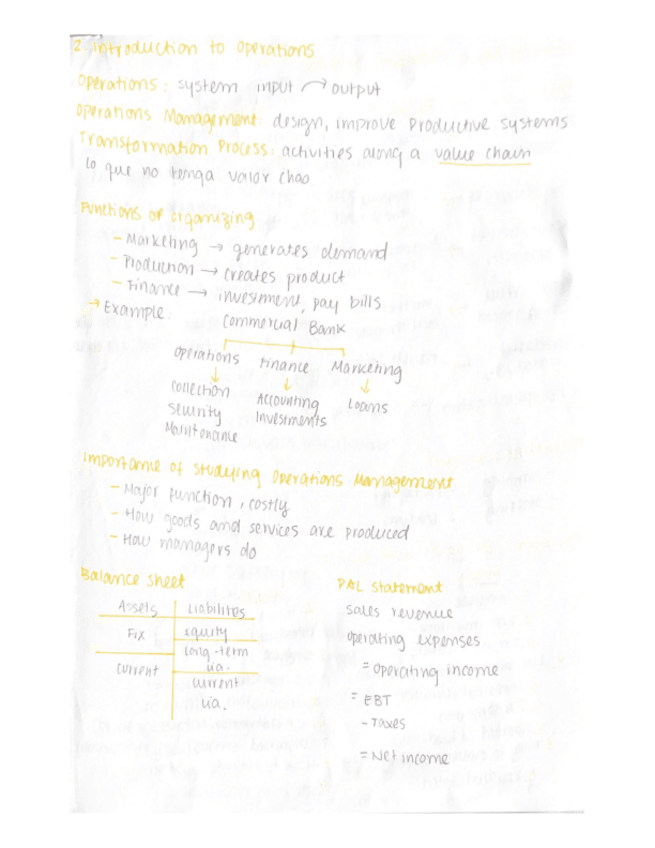 2. Introduction to Operations
Operations: system input → output
Operations Management: design, improve productive systems
Transformation Process: activities along a value chain
lo que no tenga valor chao
Functions of organizing
- Marketing → generates demand
- Production → creates product
- Finance → investment, pay bills
→ Example:
Commercial Bank
Operations Finance Marketing
Collection Accounting Loans
Security Investments
Maintenance
Importance of Studying Operations Management
- Major function, costly
- How goods and services are produced
- How managers do
Balance sheet
Assets Liabilites
Fix equity
long-term
lia.
current
current
lia.
P&L statement
sales revenue
operating expenses
= Operating income
= EBT
- Taxes
= Net income